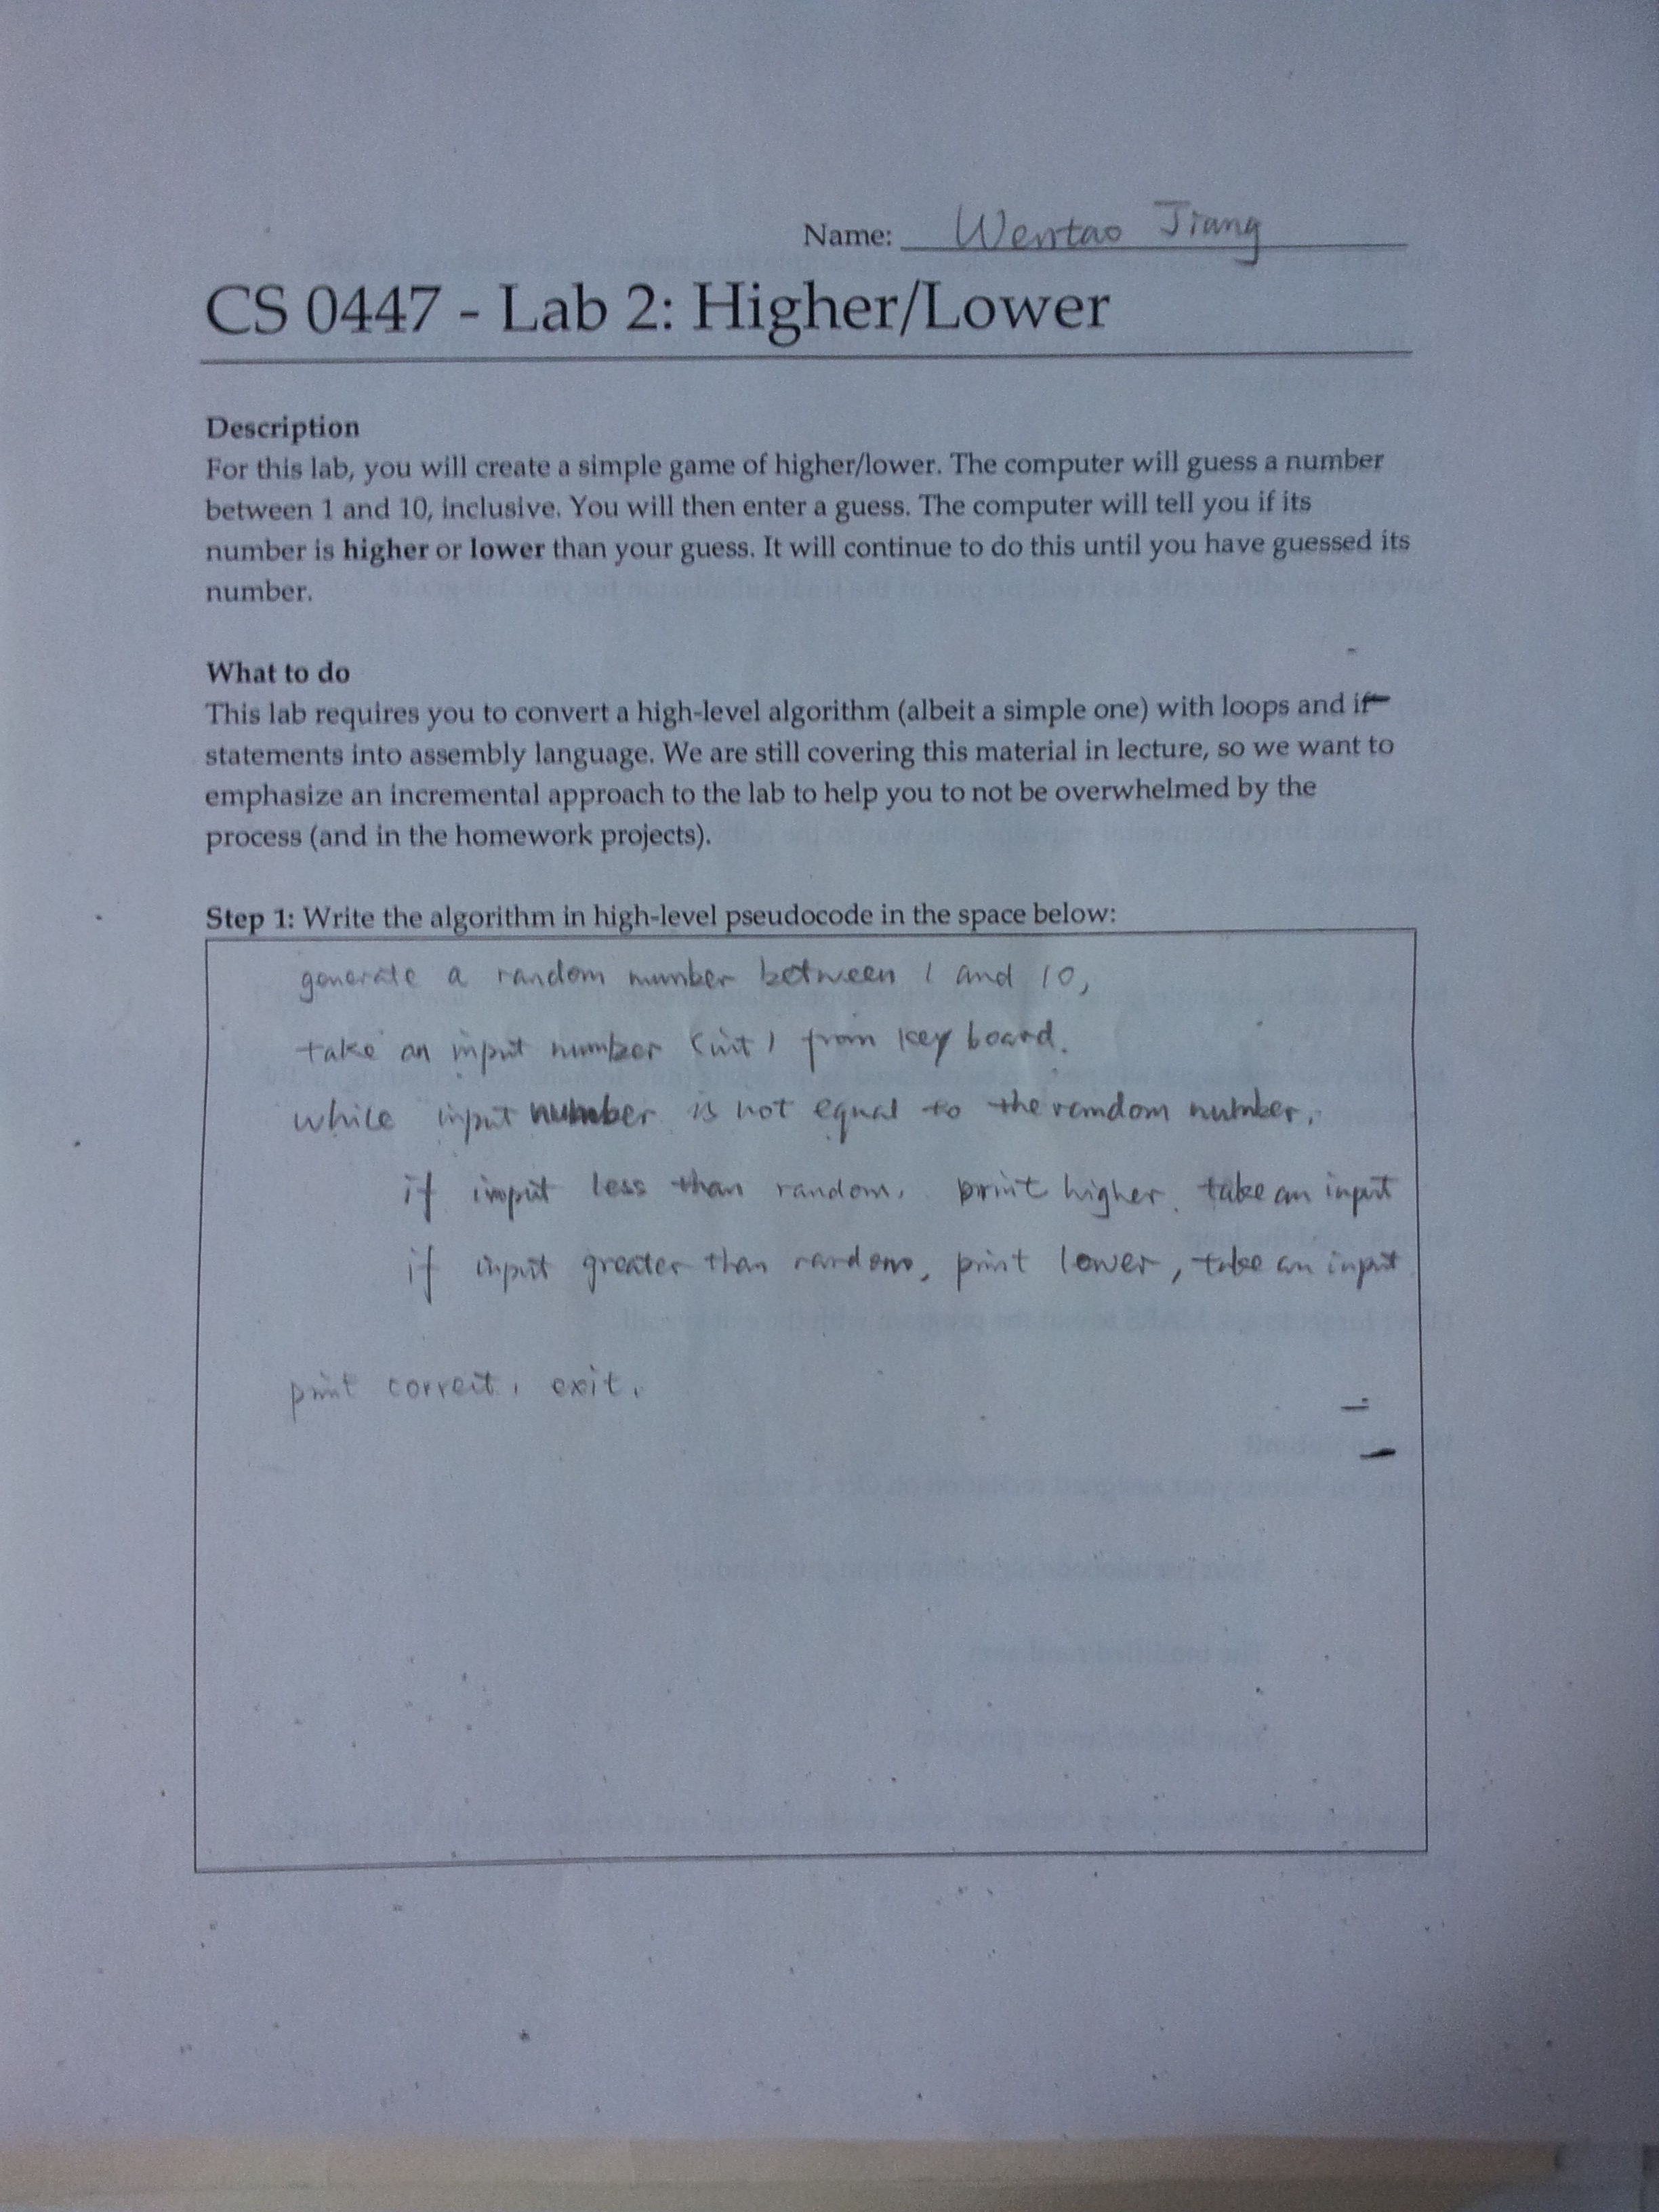 Name: Wentao Jiang
CS 0447 - Lab 2: Higher/Lower
Description
For this lab, you will create a simple game of higher/lower. The computer will guess a number
between 1 and 10, inclusive. You will then enter a guess. The computer will tell you if its
number is higher or lower than your guess. It will continue to do this until you have guessed its
number.
What to do
This lab requires you to convert a high-level algorithm (albeit a simple one) with loops and if
statements into assembly language. We are still covering this material in lecture, so we want to
emphasize an incremental approach to the lab to help you to not be overwhelmed by the
process (and in the homework projects).
Step 1: Write the algorithm in high-level pseudocode in the space below:
generate a random number between 1 and 10,
take an input number (int) from key board.
while input number is not equal to the random number,
if input less than random, print higher, take an input
if input greater than random, print lower, take an input
print correct, exit.